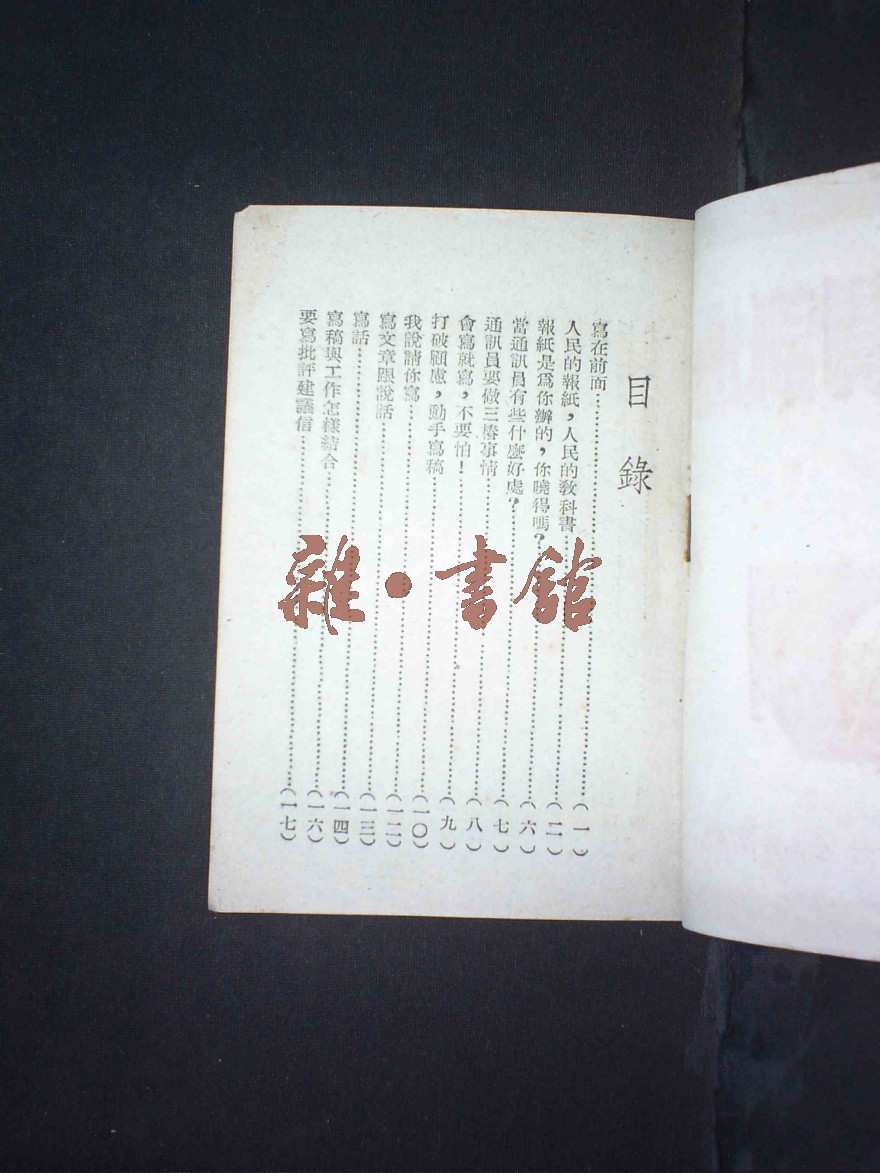 目錄
寫在前面……………………(一)
人民的報紙，人民的教科書……………………(二)
報紙是爲你辦的，你曉得嗎？……………………(六)
當通訊員有些什麼好處？……………………(七)
通訊員要做三樁事情……………………(八)
會寫就寫，不要怕！……………………(九)
打破顧慮，動手寫稿……………………(一〇)
我說請你寫……………………(一二)
寫文章跟說話……………………(一三)
寫話……………………(一四)
寫稿與工作怎樣結合……………………(一六)
要寫批評建議信……………………(一七)
雜·書館